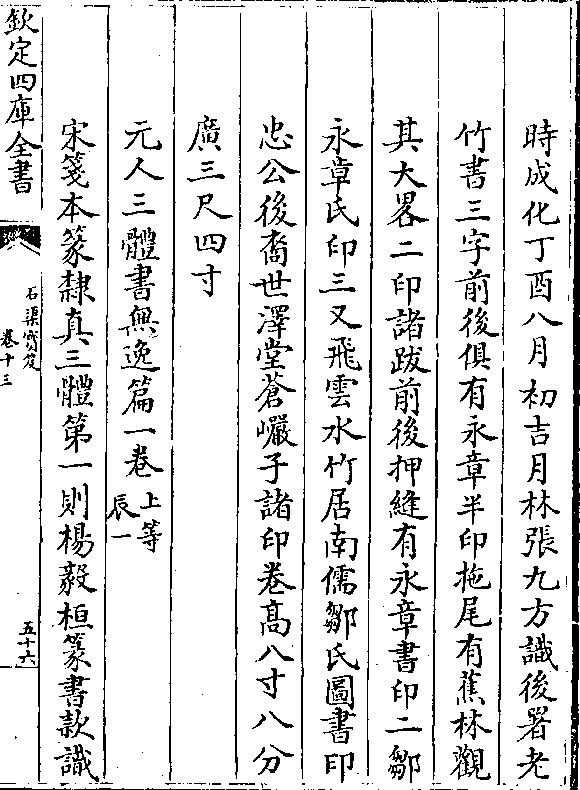 時成化丁酉八月初吉月林張九方識後署老
竹書三字前後俱有永章半印拖尾有蕉林觀
其大畧二印諸跋前後押縫有永章書印二鄒
永章氏印三又飛雲水竹居南儒鄒氏圖書印
忠公後裔世澤堂蒼巗子諸印卷高八寸八分
廣三尺四寸
元人三體書無逸篇一卷
上等
辰一
宋箋本篆隸真三體第一則楊毅桓篆書款識
欽定四庫全書
石渠寳笈
卷十三
五十六